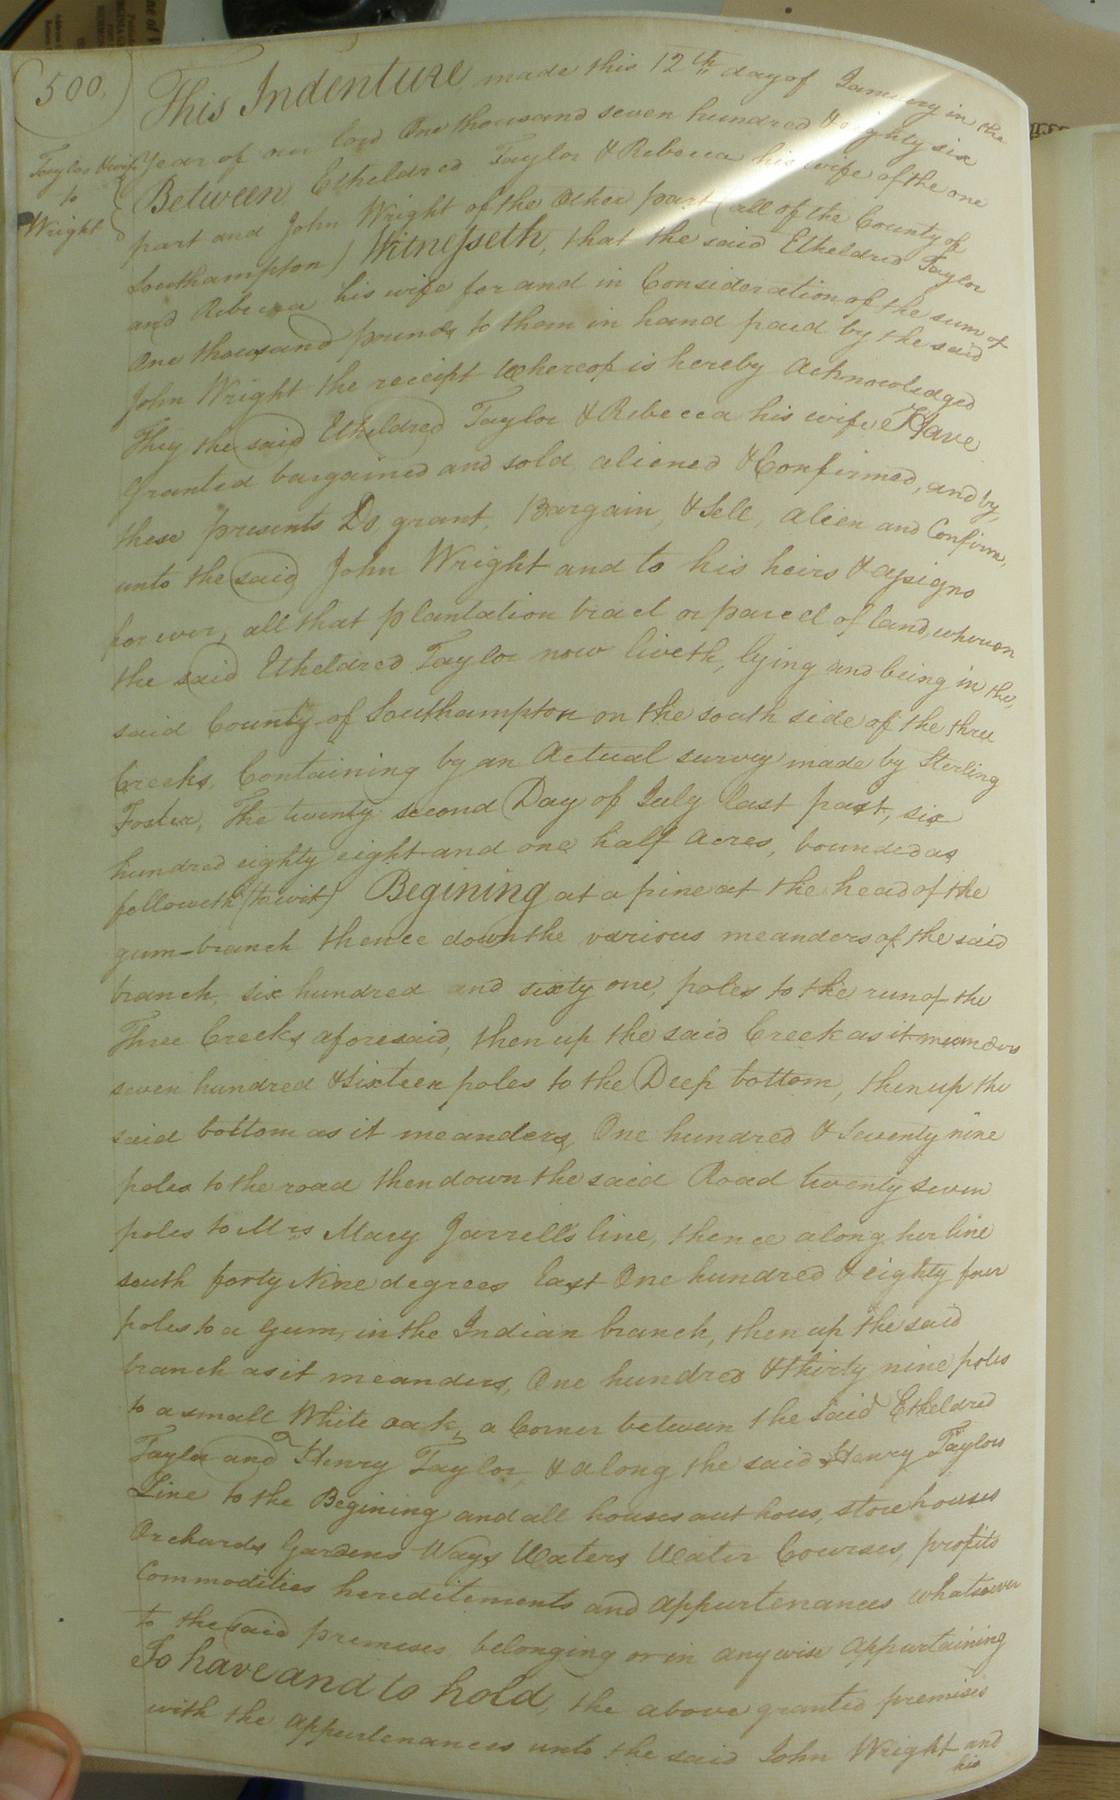 500.
Taylor & wife
to
Wright
This Indenture made this 12th day of January in the
year of our lord One thousand seven hundred & eighty six
Between Etheldred Taylor & Rebecca his wife of the one
part and John Wright of the Other part (all of the County of
Southampton) Witnesseth, that the said Etheldred Taylor
and Rebecca his wife for and in Consideration of the sum of
One thousand pounds to them in hand paid by the said
John Wright the receipt Whereof is hereby Acknowledged
They the said Etheldred Taylor & Rebecca his wife Have
granted bargained and sold, aliened & Confirmed, and by,
these presents Do grant, Bargain, & Sell, alien and Confirm,
unto the said John Wright and to his heirs & assigns
for ever, all that plantation tract or parcel of land, whereon
the said Etheldred Taylor now liveth, lying and being in the,
said County of Southampton on the south side of the three
Creeks, Containing by an Actual survey made by Sterling
Foster, The twenty second Day of July last past, six
hundred eighty eight and one half Acres, bounded as
followeth (to wit) Begining at a pine at the head of the
gum-branch thence down the various meanders of the said
branch, six hundred and sixty one, poles to the run of the
Three Creeks aforesaid, then up the said Creek as it meanders
seven hundred & sixteen poles to the Deep bottom, then up the
said bottom as it meanders, One hundred & Seventy nine
poles to the road then down the said Road twenty seven
poles to Mrs Mary Jarrell's line, thence along her line
south forty Nine degrees East One hundred & eighty four
poles to a Gum, in the Indian branch, then up the said
branch as it meanders, One hundred & thirty nine poles
to a small White oak, a Corner between the said Etheldred
Taylor and Henry Taylor, & along the said Henry Taylors
Line to the Begining and all houses out hous, store houses
Orchards, Gardens Ways Waters Water Courses, profits
Commodities hereditements and appurtenances whatsoever
to the said premises belonging or in any wise Appurtaining
To have and to hold, the above granted premises
with the Appurtenances unto the said John Wright and
his